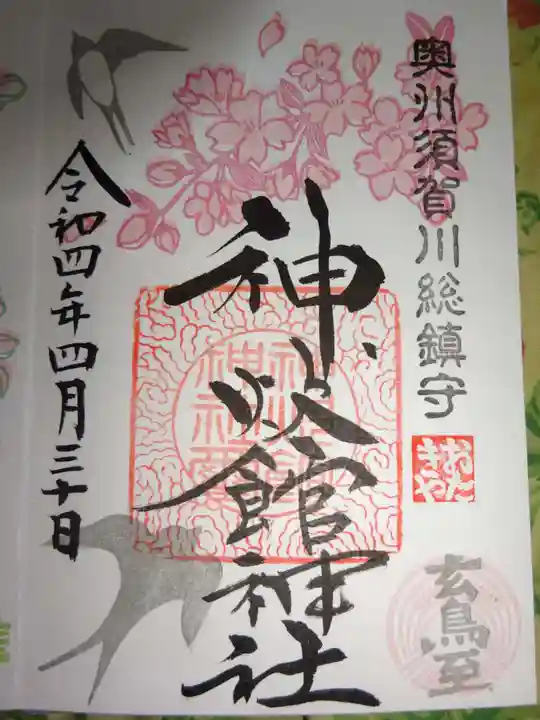 奥州須賀川総鎮守
おたきや
玄鳥至
神炊館神社
令和四年四月三十日